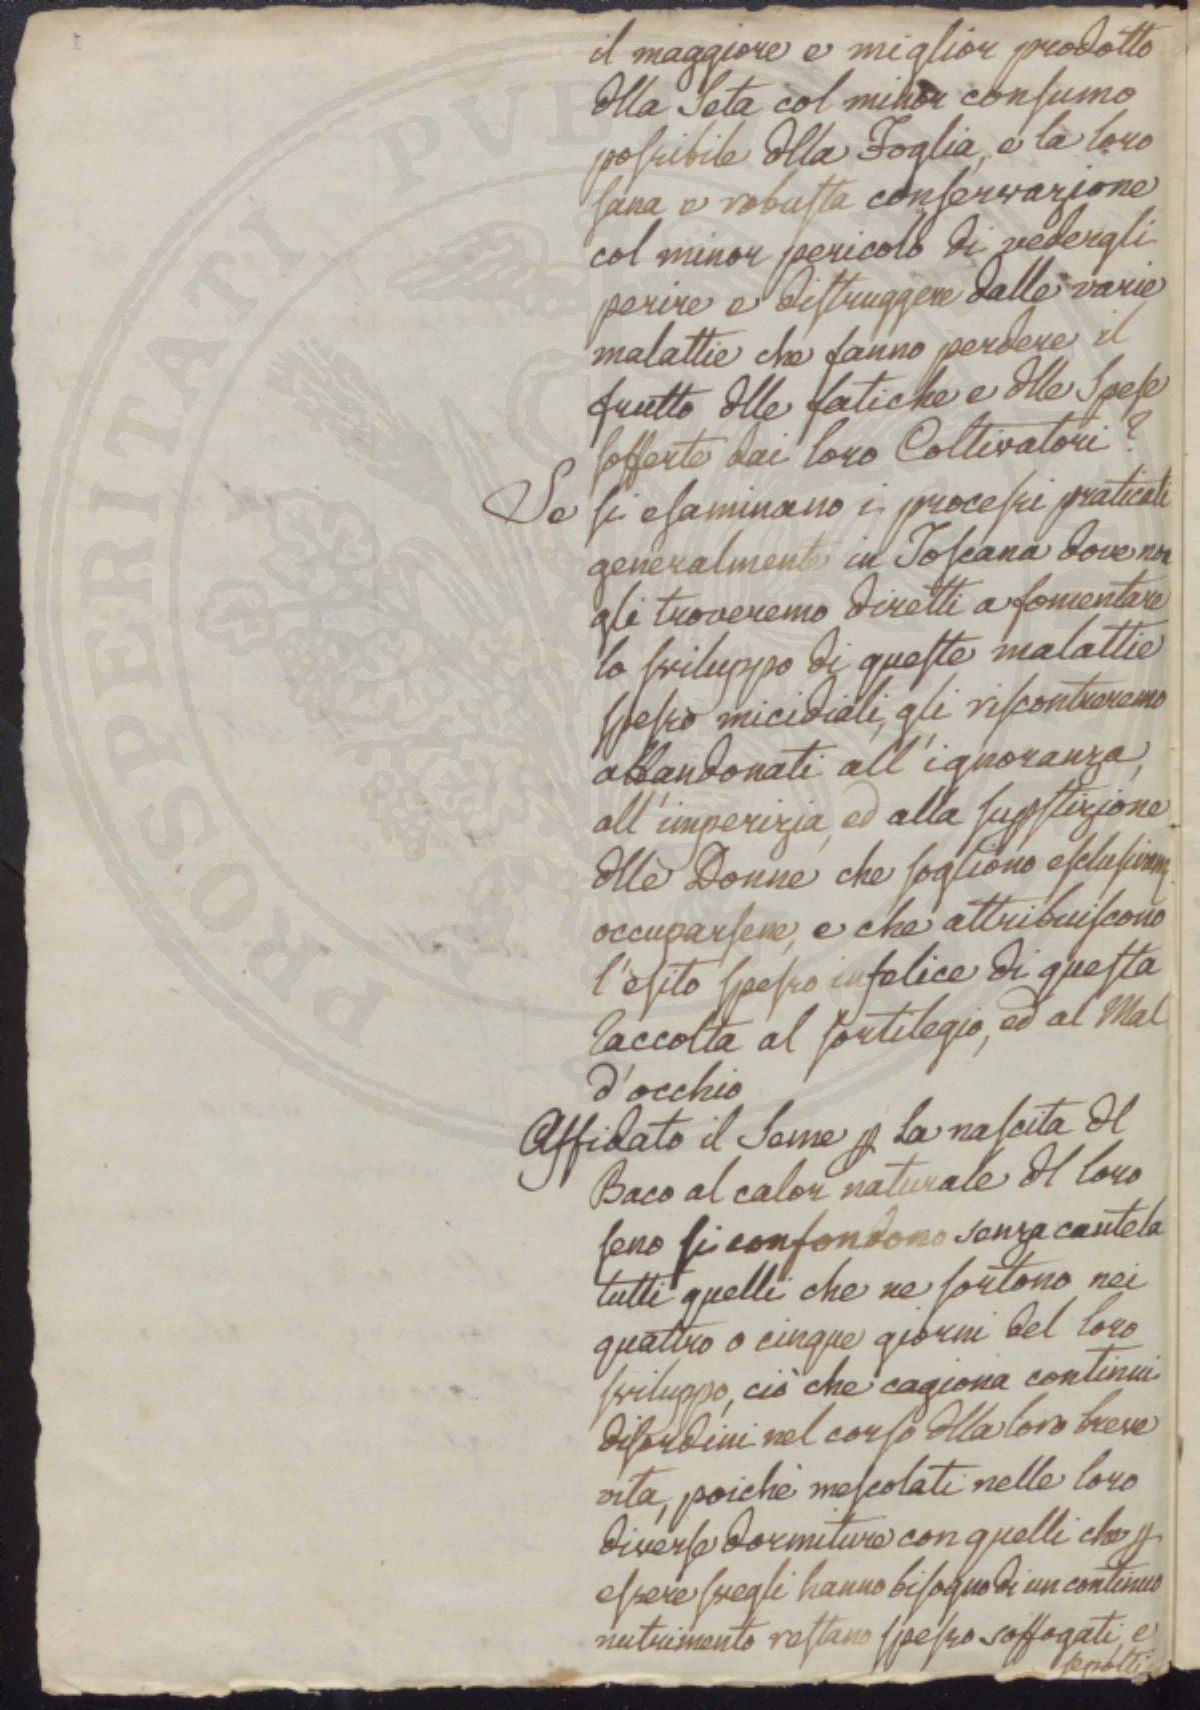 il maggiore e miglior prodotto
dlla Seta col minor consumo
possibile dlla Foglia, e la loro
sana e robusta conservazione
col minor pericolo di vedergli
perire e distruggere dalle varie
malattie che fanno perdere il
frutto dlle fatiche e dlle Spese
sofferte dai loro Coltivatori?
Se si esaminano i processi praticati
generalmente in Toscana dove non
gli troveremo diretti a fomentare
lo sviluppo di queste malattie
spesso micidiali, gli riscontreremo
abbandonati all'ignoranza,
all'imperizia, ed alla supstizione
dlle Donne, che sogliono esclusivam
occuparsene, e che attribuiscono
l'esito spesso infelice di questa
raccolta al sortilegio, ed al Mal
d'occhio
Affidato il Seme p la nascita dl
Baco al calor naturale dl loro
seno si confondono senza cautela
tutti quelli che ne sortono nei
quattro o cinque giorni del loro
sviluppo, ciò che cagiona continui
disordini nel corso dlla loro breve
vita, poichè mescolati nelle loro
diverse dormiture con quelli che p
essere svegli hanno bisogno di un continuo
nutrimento restano spesso soffogati, e
sepolti
PROSPERITATI PVB